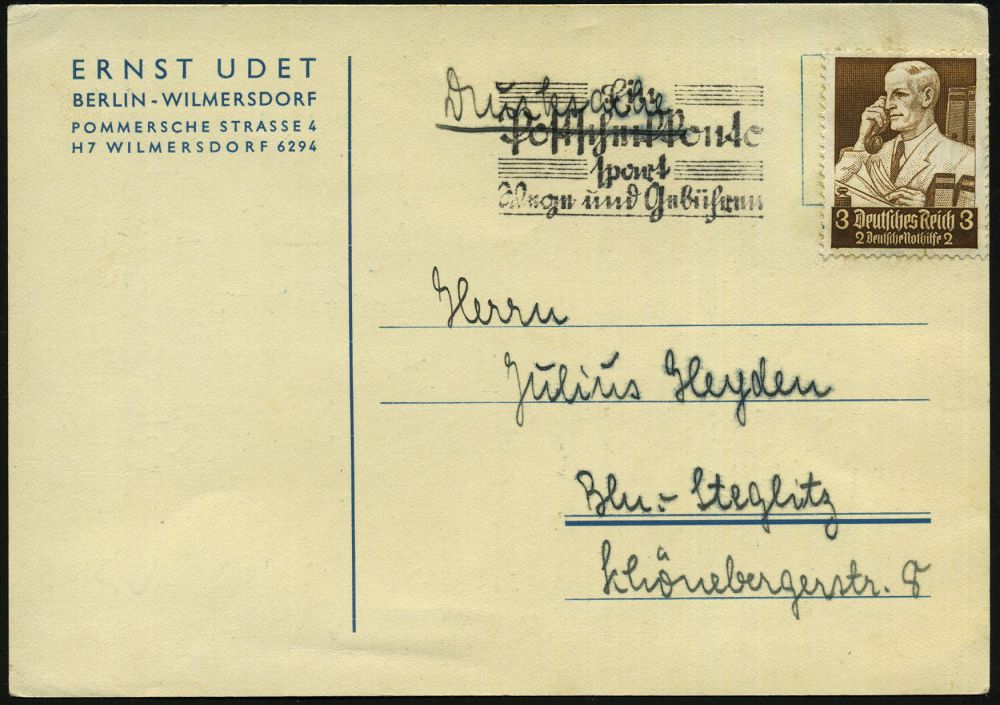 ERNST UDET
BERLIN-WILMERSDORF
POMMERSCHE STRASSE 4
H7 WILMERSDORF 6294
Drucksache
Ein
Postscheckkonto
spart
Wege und Gebühren
3 Deutsches Reich 3
2 Deutsche Nothilfe 2
Herrn
Julius Heyden
Bln.- Steglitz
Schönebergerstr. 8